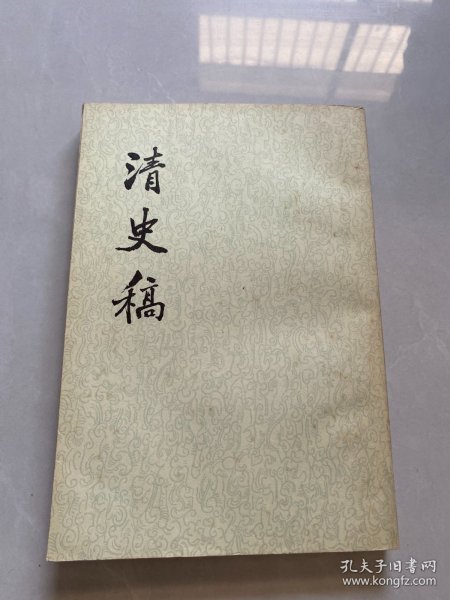 清史稿
孔夫子旧书网
www.kongfz.com